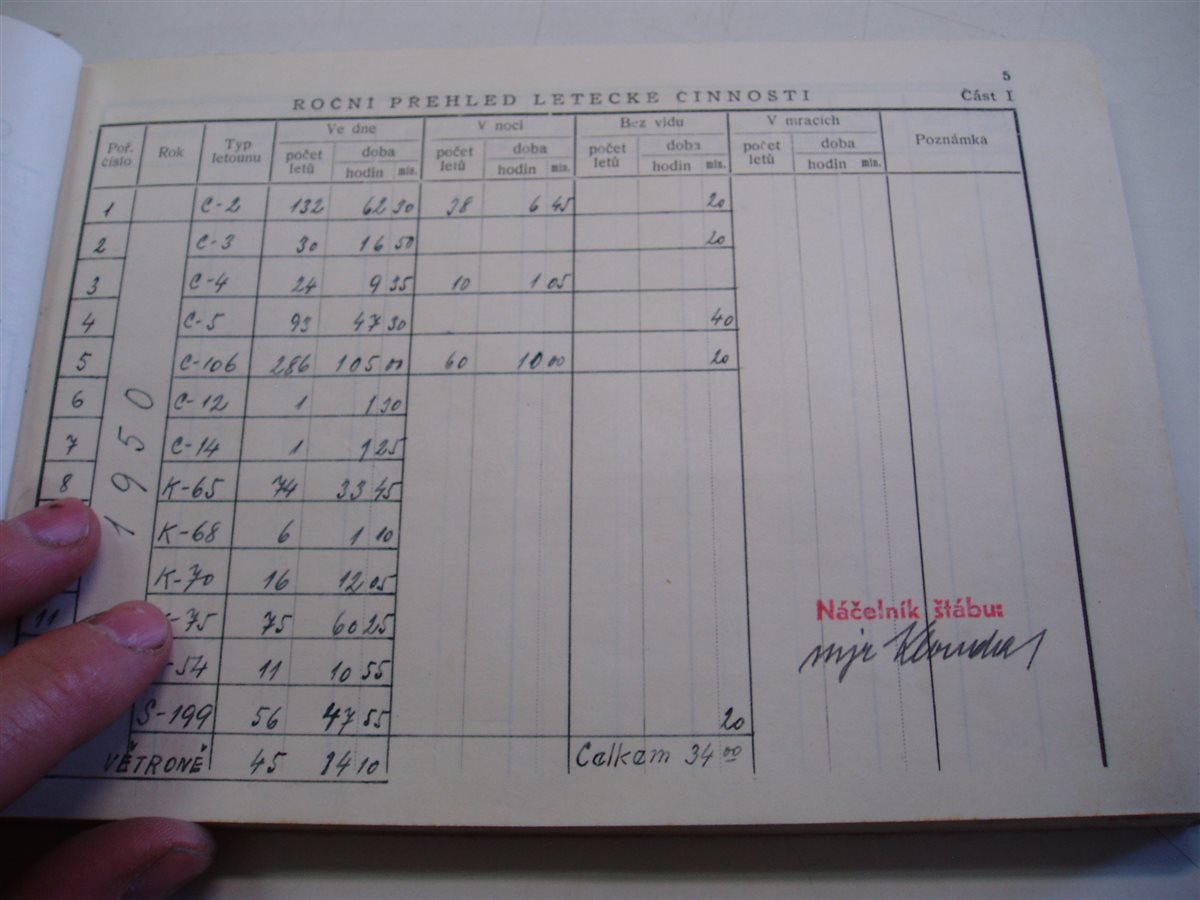 5
ROČNÍ PŘEHLED LETECKÉ ČINNOSTI Část I
Poř. číslo Rok Typ letounu Ve dne V noci Bez vidu V mracích Poznámka
počet letů doba počet letů doba počet letů doba počet letů doba
hodin min. hodin min. hodin min. hodin min.
1 C-2 132 62 30 38 6 45 20
2 C-3 30 16 50 20
3 C-4 24 9 35 10 1 05
4 C-5 93 47 30 40
5 C-106 286 105 00 60 10 00 20
6 C-12 1 1 30
7 C-14 1 1 25
8 K-65 74 33 45
1950
K-68 6 1 10
K-70 16 12 05
11 -75 75 60 25
-54 11 10 55
S-199 56 47 55 20
VĚTRONĚ 45 14 10 Celkem 34 00
Náčelník štábu:
mjr